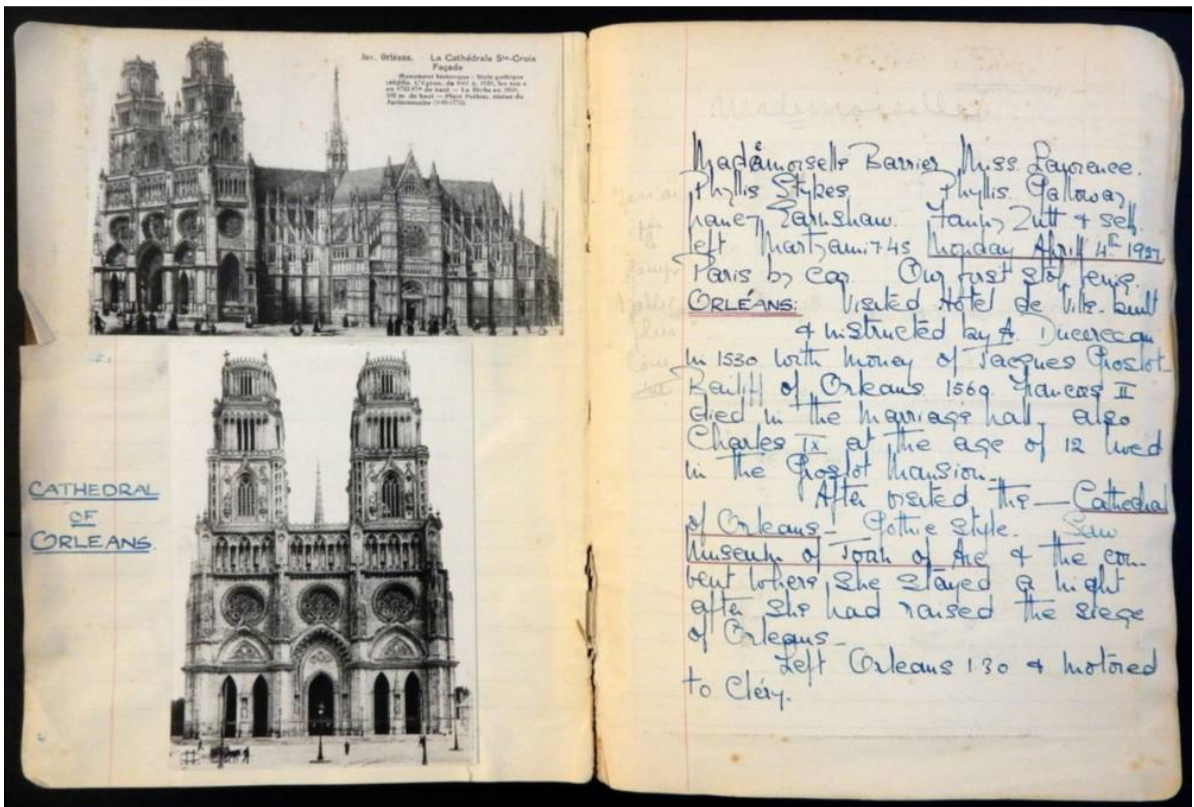 Orléans. La Cathédrale Ste-Croix
Façade
Monument historique : Style gothique
CATHEDRAL
OF
ORLEANS.
Mademoiselle
Mademoiselle Barrier, Miss. Lawrence.
Phyllis Stykes Phyllis. Galloway
Nancy Earnshaw. Fanny Zutt & self.
left 7.45 Monday April 4th 1927
Paris by car. Our first stop being.
ORLÉANS: Visited Hôtel de Ville. built
& instructed by A. Ducercean
in 1530 with money of Jacques Groslot
Bailiff of Orleans. 1569. Francois II
died in the marriage hall, also
Charles IX at the age of 12 lived
in the Groslot Mansion_
After visited the — Cathedral
of Orleans_ Gothic style. Saw
Museum of Joan of Arc & the con-
vent where she stayed a night
after she had raised the siege
of Orleans_
Left Orleans 1.30 & motored
to Cléry.